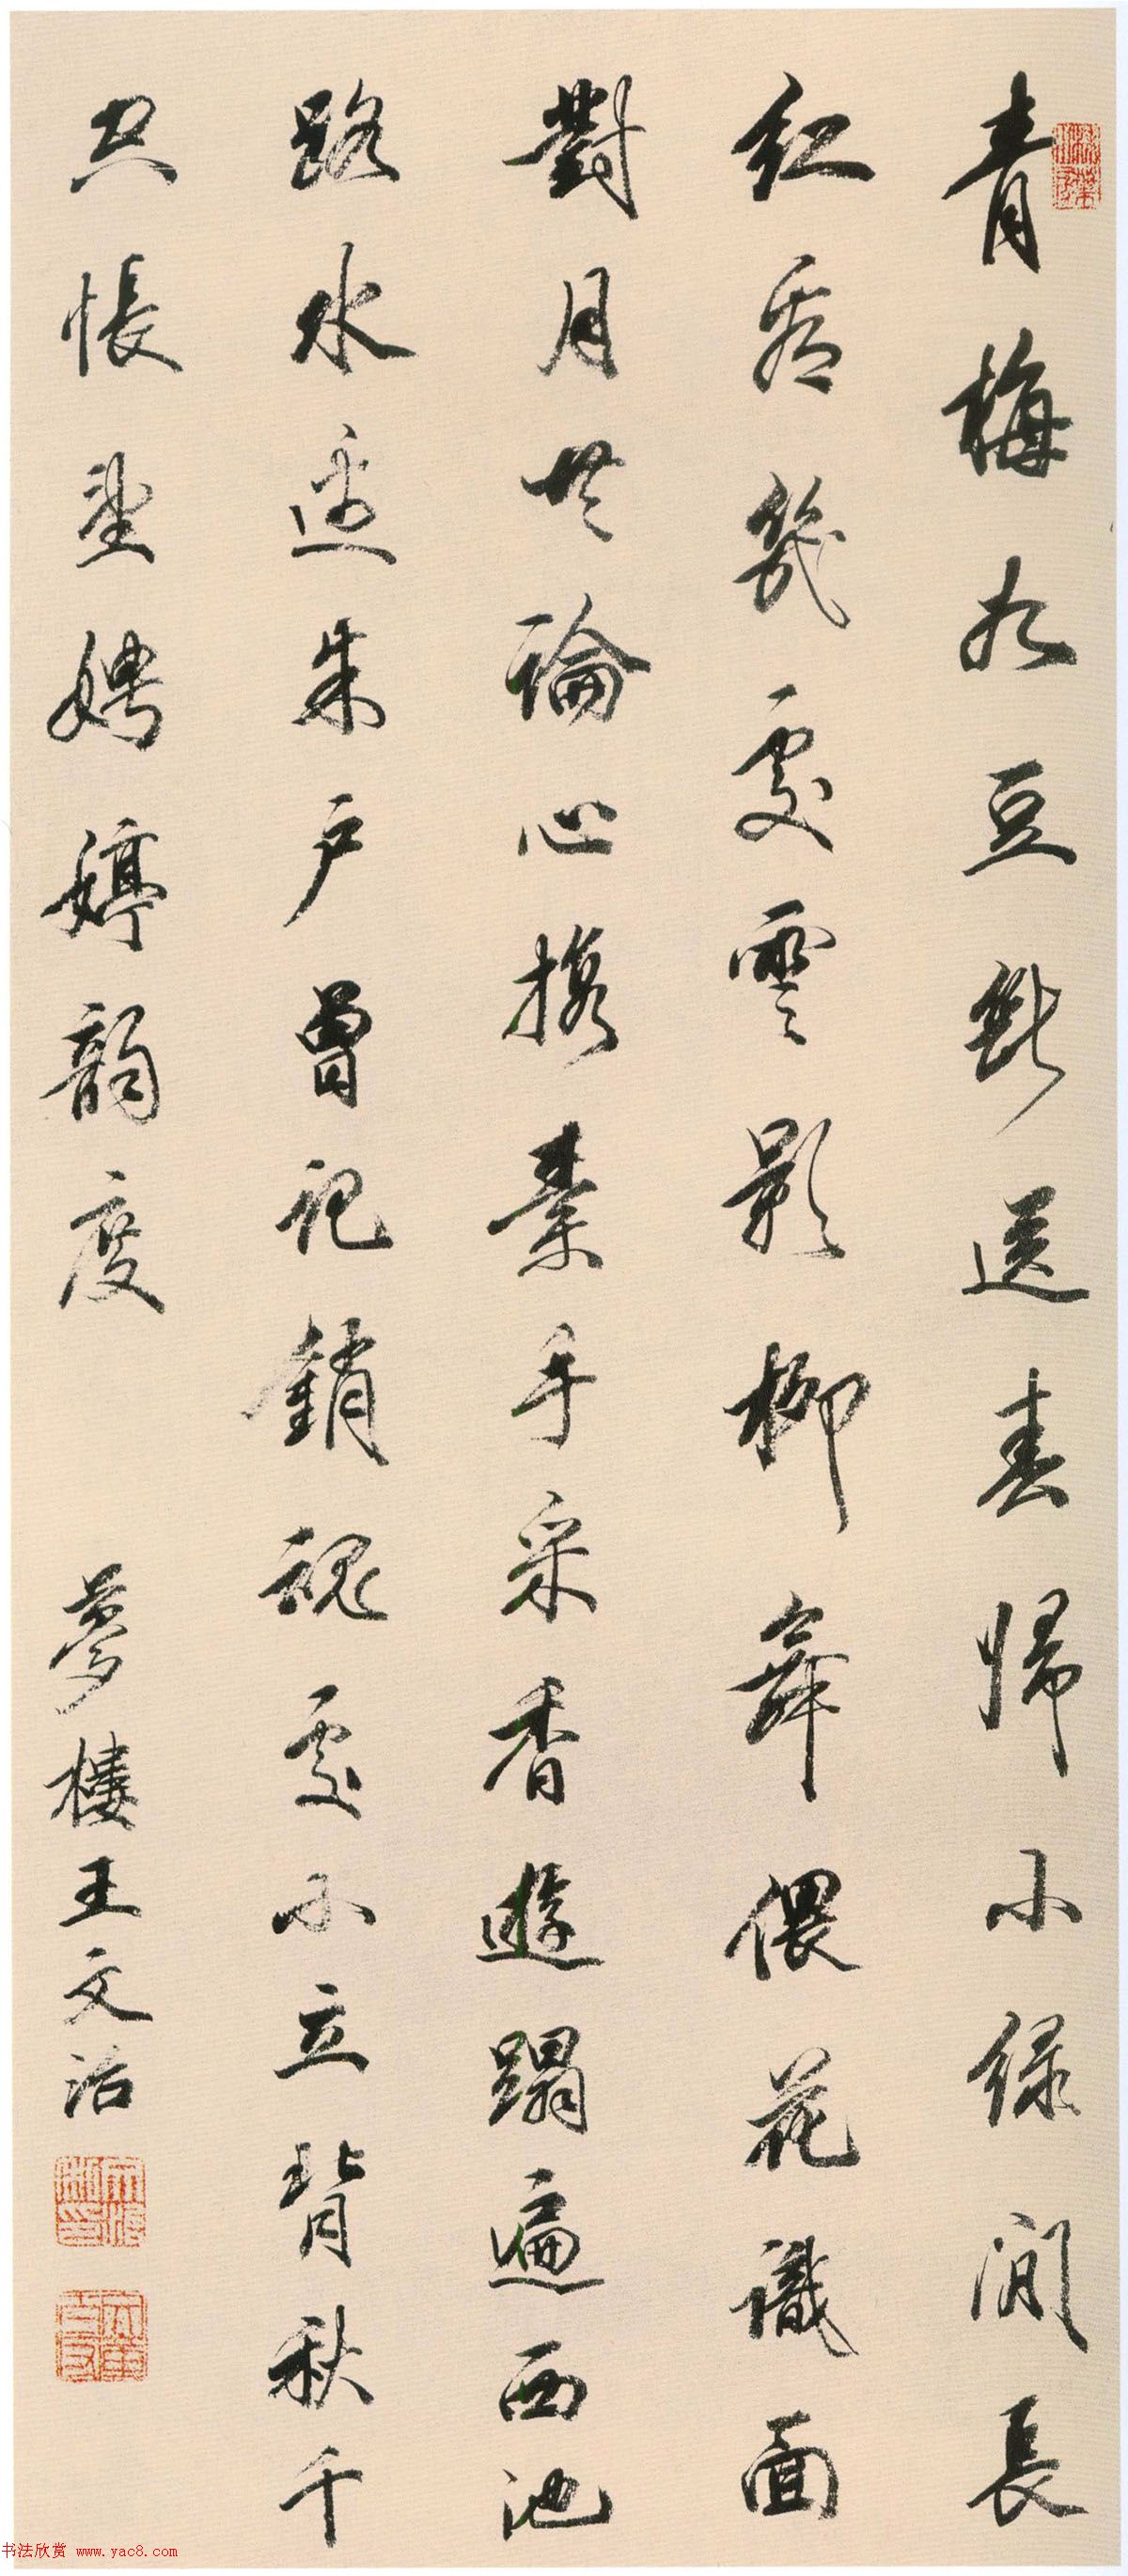 青梅如豆斷送春歸小綠間長
紅露幾處雲影柳舞偎花識面
對月共論心攜素手采香遊蹋遍西池
路水邊朱戶曾記銷魂處小立背秋千
空悵望娉婷韻度
夢樓王文治
书法欣赏 www.yac8.com